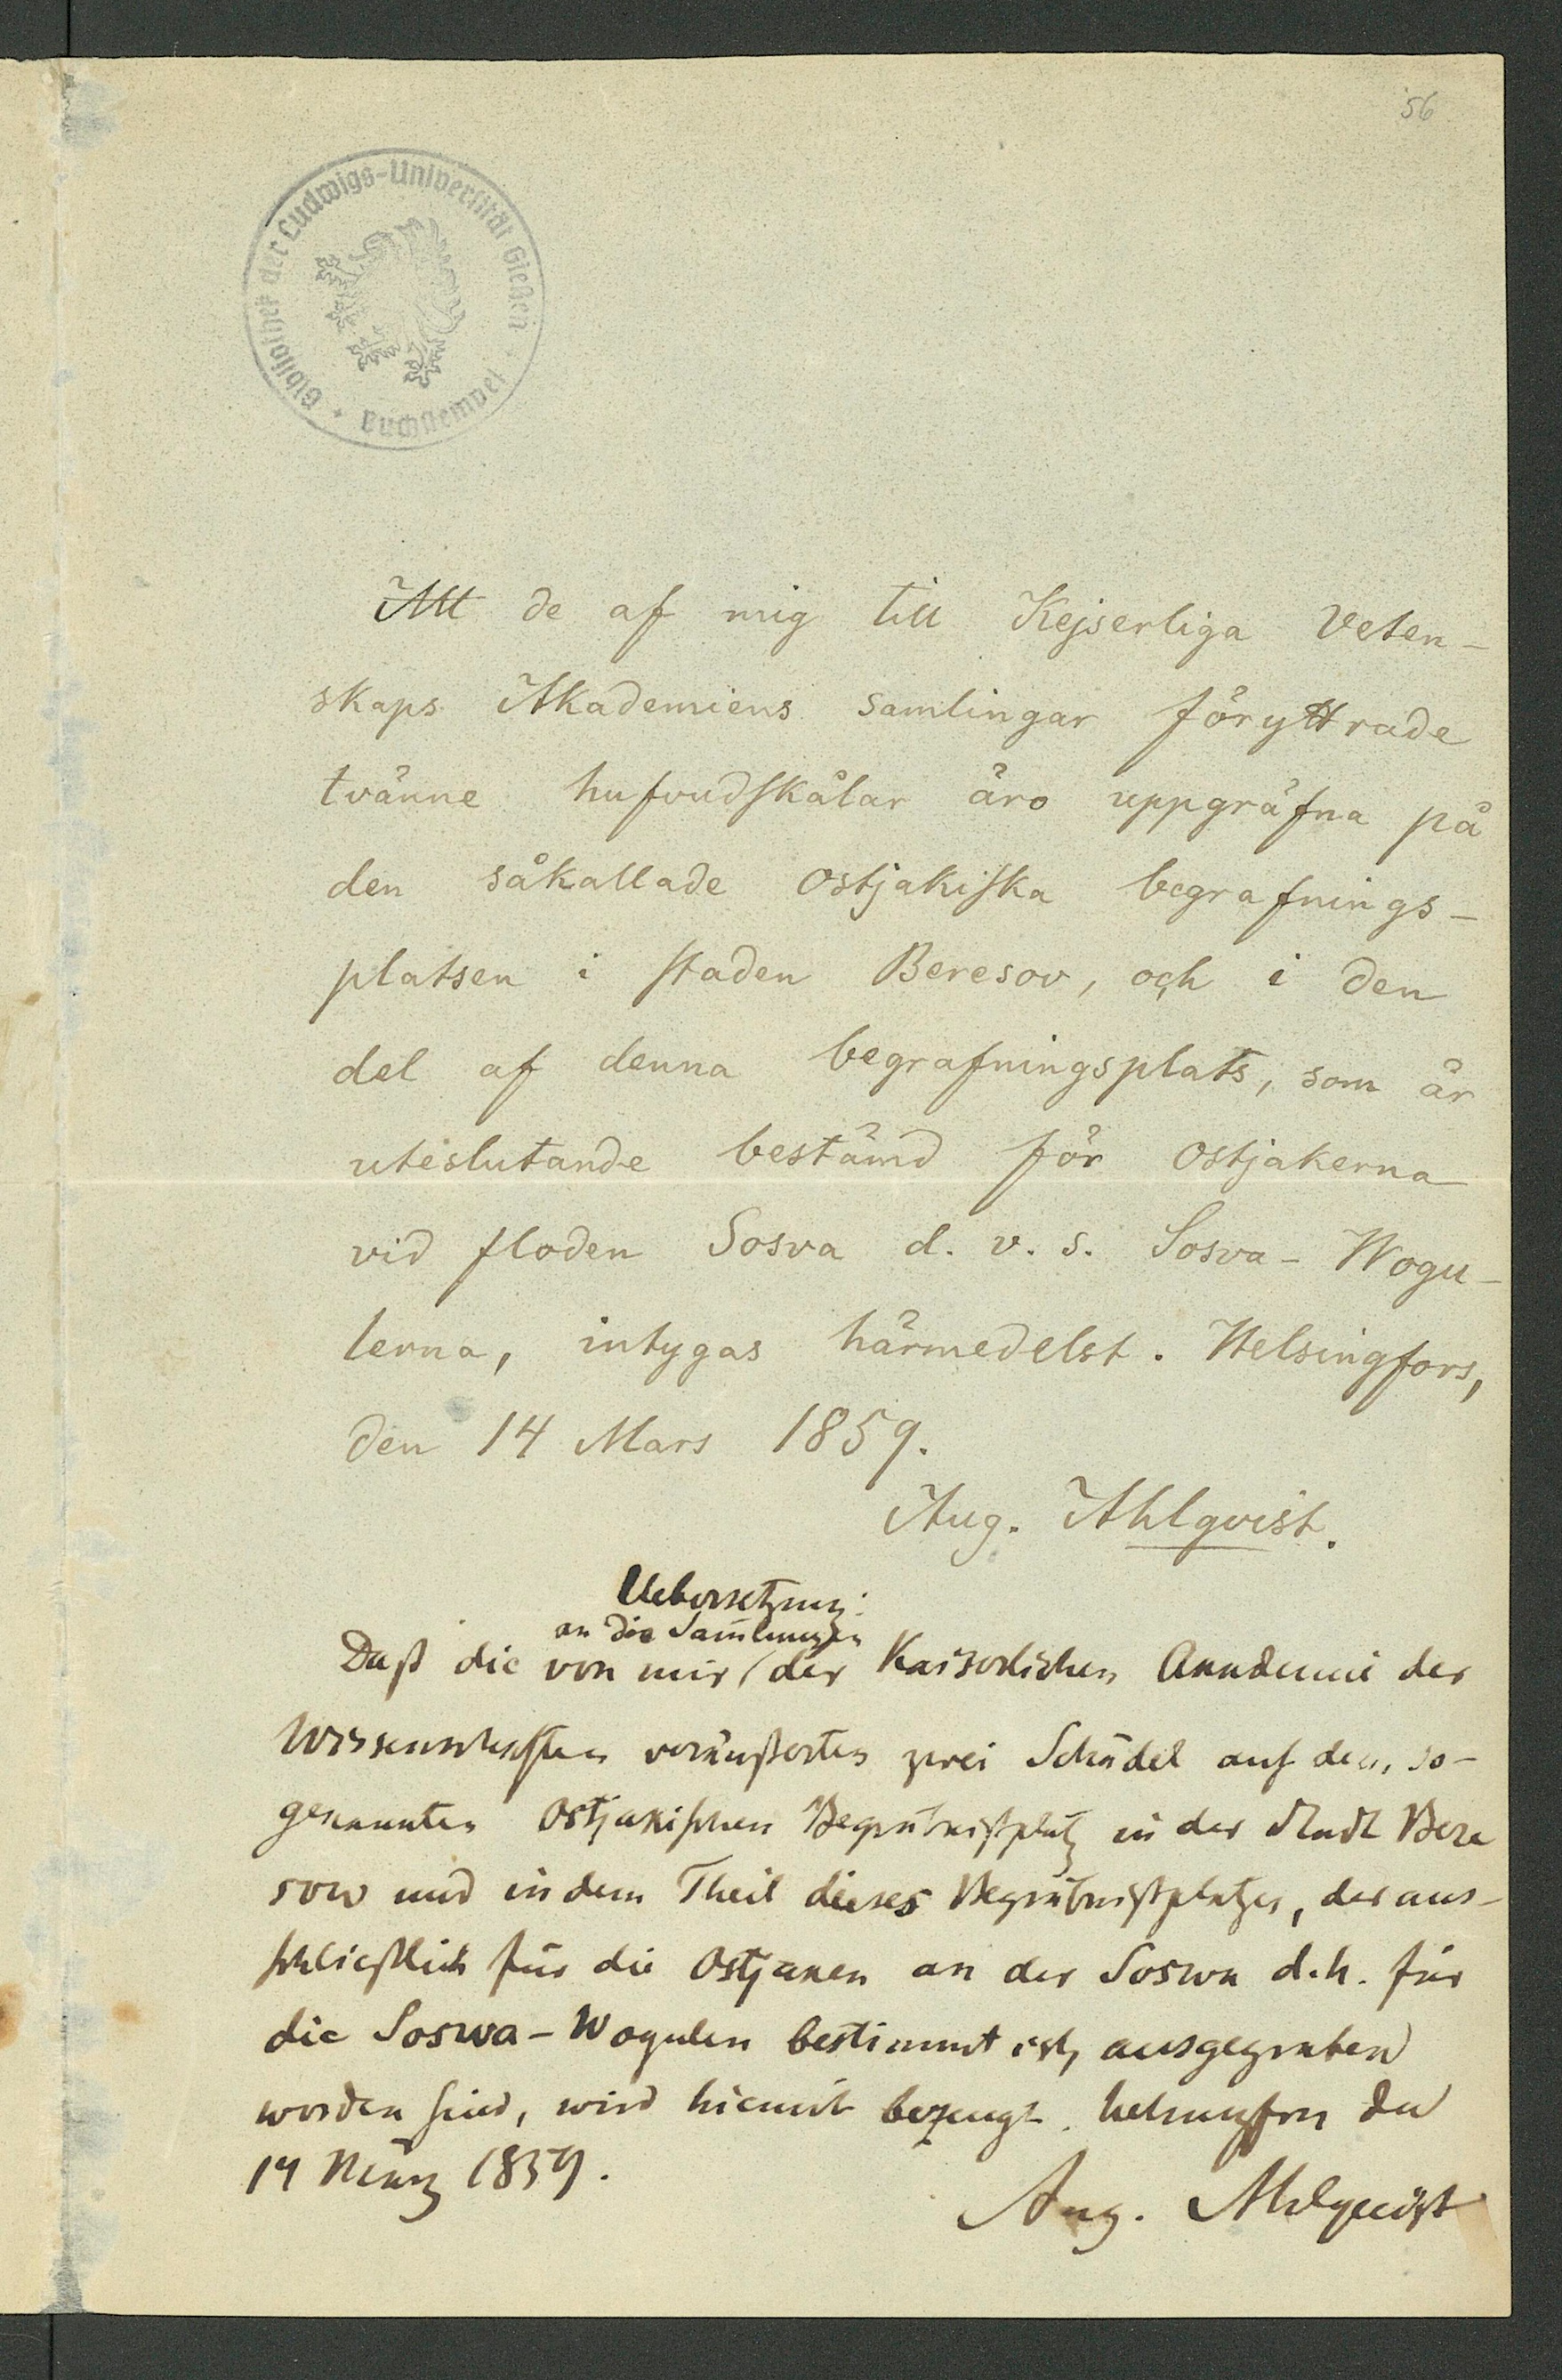 56
Bibliothek der Ludwigs-Universität Gießen
Buchstempel
Att de af mig till Kejserliga Veten-
skaps Akademiens samlingar föryttrade
tvänne hufvudskålar äro uppgräfna på
den såkallade Ostjakiska begrafnings-
platsen i staden Beresov, och i den
del af denna begrafningsplats, som är
uteslutande bestämd för Ostjakerna
vid floden Sosva d. v. s. Sosva-Wogu-
lerna, intygas härmedelst. Helsingfors,
den 14 Mars 1859.
Aug. Ahlqvist.
Uebersetzung:
an die Samlungen
Daß die von mir / der Kaiserlichen Akademie der
Wissenschaften veräußerten zwei Schädel auf dem so-
genannten Ostjakischen Begräbnißplatz in der Stadt Bere
sow und in dem Theil dieses Begräbnißplatzes, der aus-
schließlich für die Ostjaken an der Soswa d.h. für
die Soswa-Wogulen bestimmt ist, ausgegraben
worden sind, wird hiemit bezeugt. Helsingfors den
14 März 1859.
Aug. Ahlquist